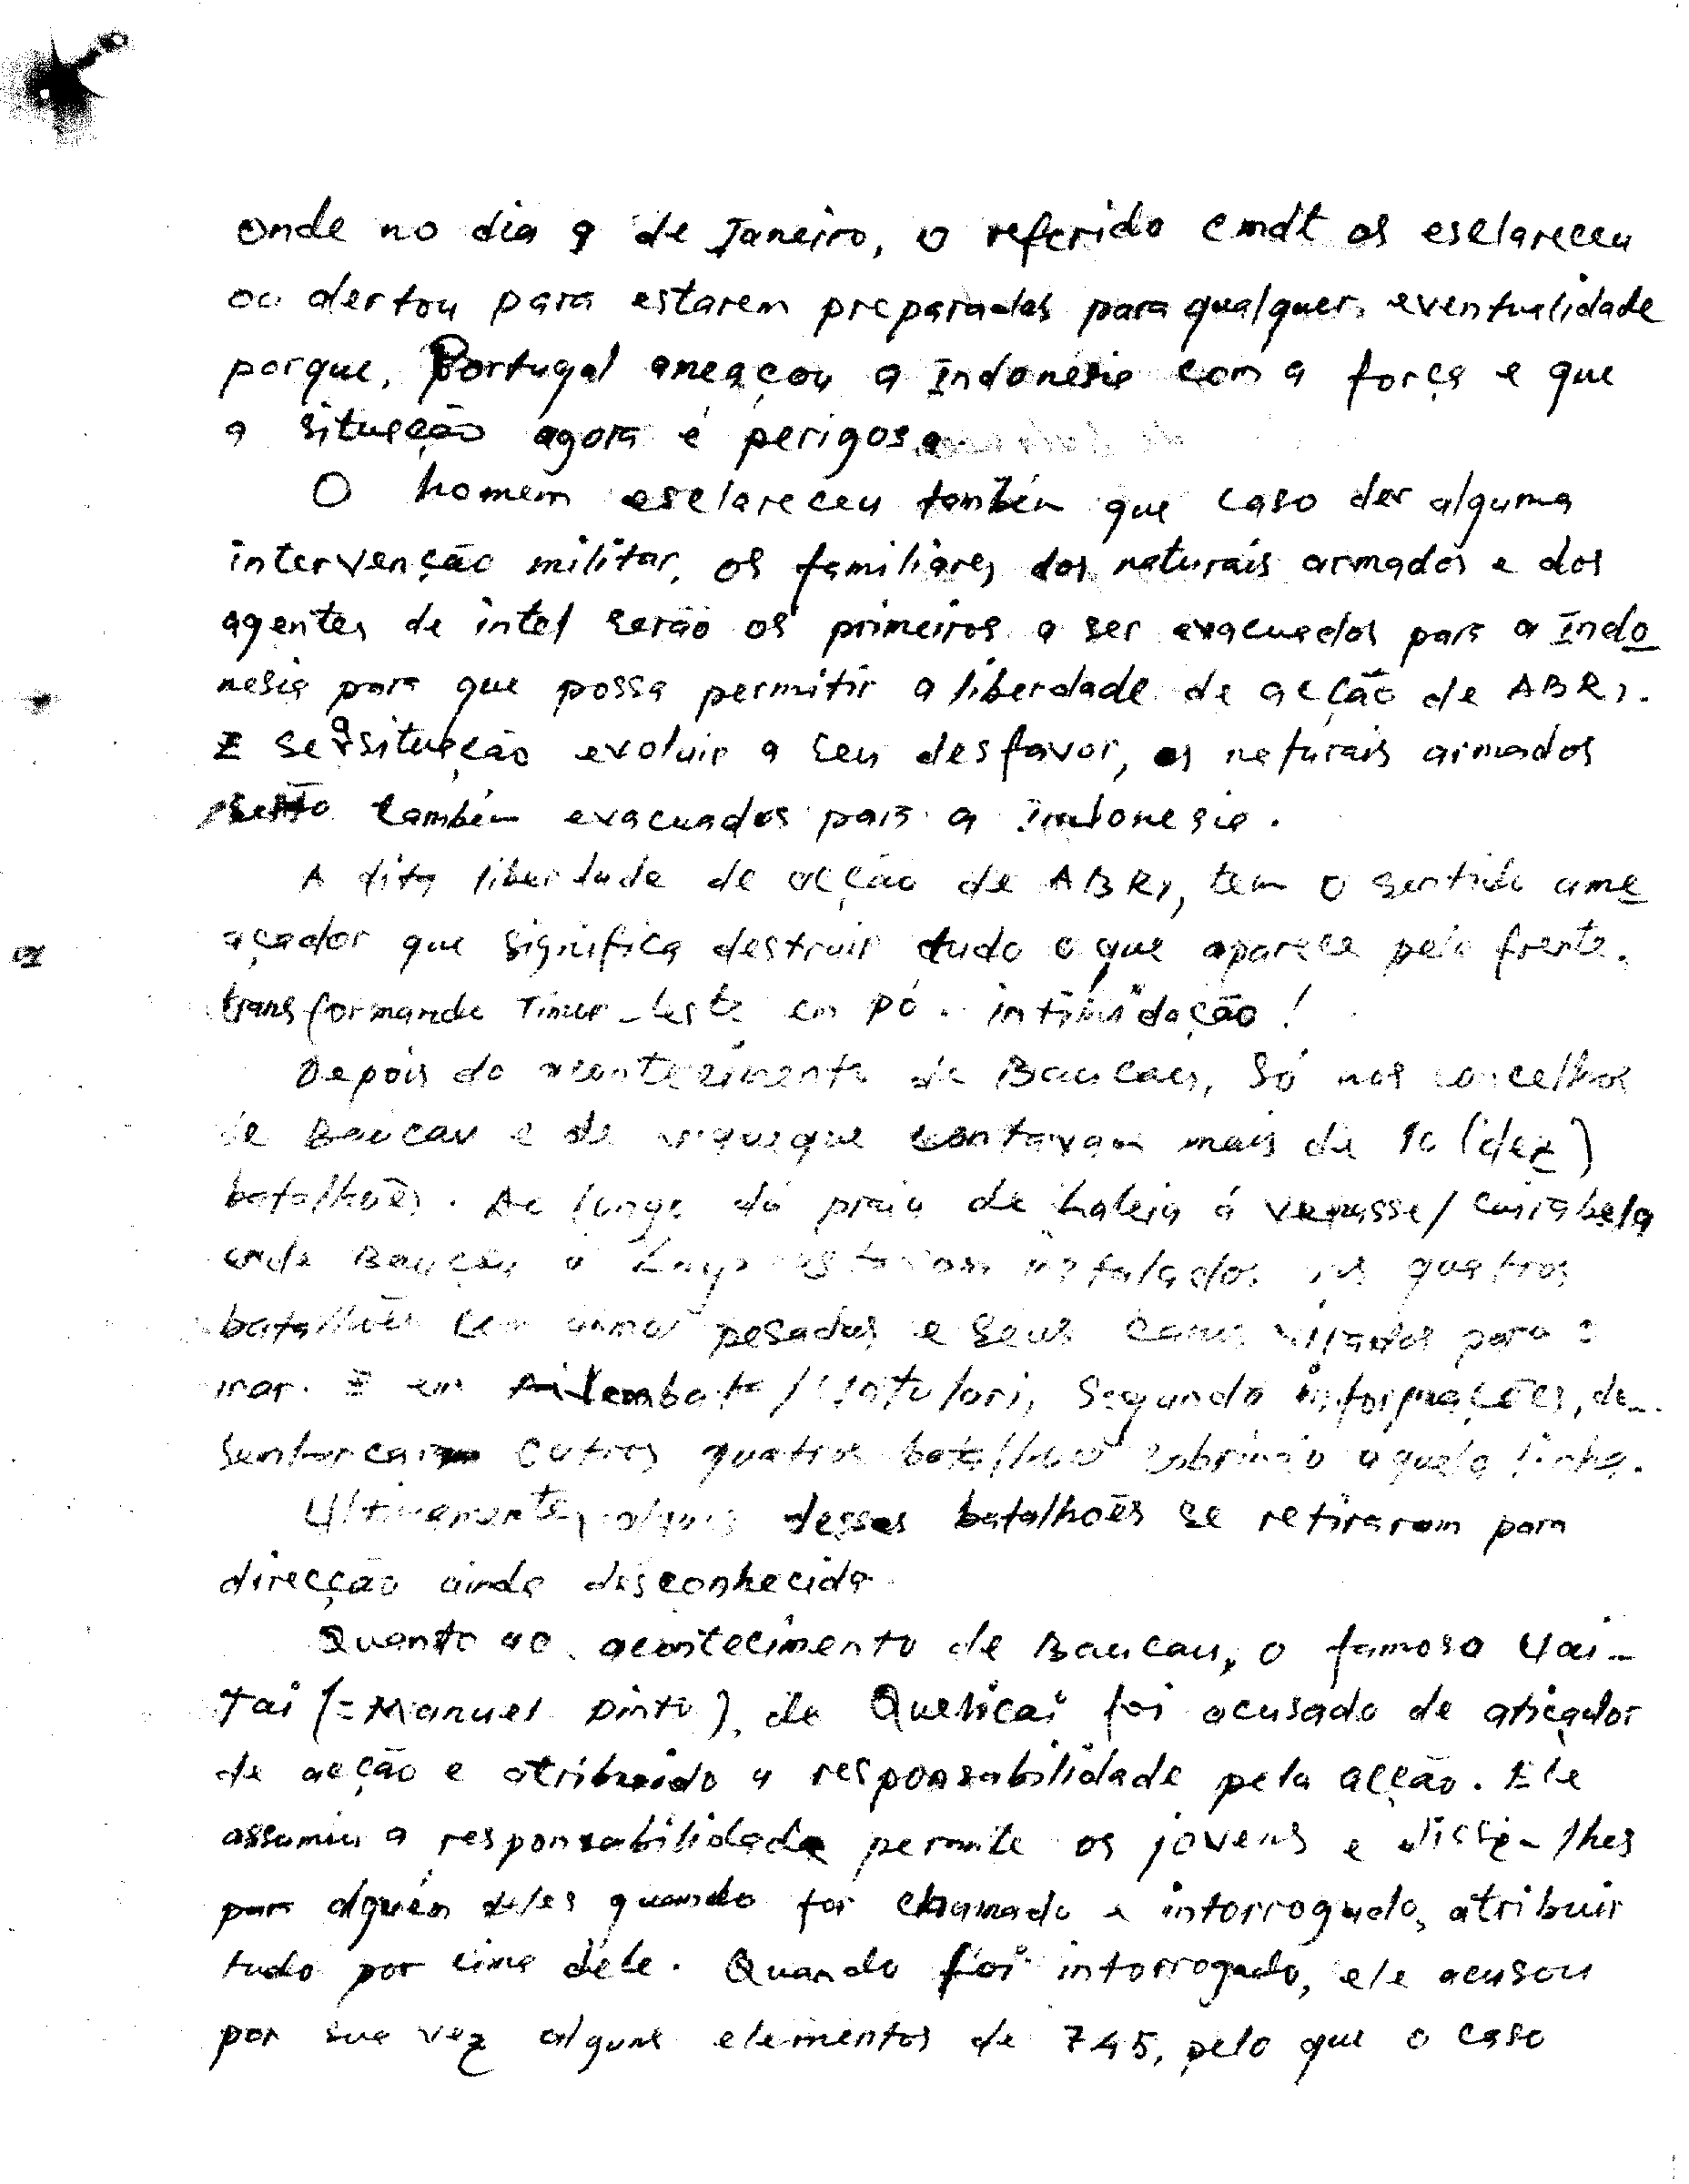 onde no dia 9 de Janeiro, o referido cmdt os esclareceu
ou alertou para estarem preparados para qualquer eventualidade
porque, Portugal ameaçou a Indonésia com a força e que
a situação agora é perigosa
O homem esclareceu também que caso der alguma
intervenção militar, os familiares dos naturais armados e dos
agentes de intel serão os primeiros a ser evacuados para a Indo
nesia para que possa permitir a liberdade de acção de ABRI.
E se a situação evoluir a seu desfavor, os naturais armados
serão também evacuados para a Indonesia.
A dita liberdade de acção de ABRI, tem o sentido ame
açador que significa destruir tudo o que aparece pela frente,
transformando Timor-leste em pó. intimidação!
Depois do acontecimento de Baucau, só nos concelhos
de Baucau e de viqueque contavam mais de 10 (dez)
batalhões. Ao longo da praia de Laleia á Vemasse/
Baucau a Laga estavam instalados uns quatros
batalhões com armas pesadas e seus canos virados para o
mar. E em /Uatulari, Segundo informações, de-
sembarcaram outros quatros batalhões aquela linha.
Ultimamente, alguns desses batalhões se retiraram para
direcção ainda desconhecida.
Quanto ao acontecimento de Baucau, o famoso Uai-
Tai (=Manuel Pinto), de Quelicai foi acusado de atiçador
de acção e atribuido a responsabilidade pela acção. Ele
assumiu a responsabilidade permite os jovens e disse-lhes
para alguém deles quando for chamado e intorrogado, atribuir
tudo por cima dele. Quando foi intorrogado, ele acusou
por sua vez alguns elementos de 745, pelo que o caso